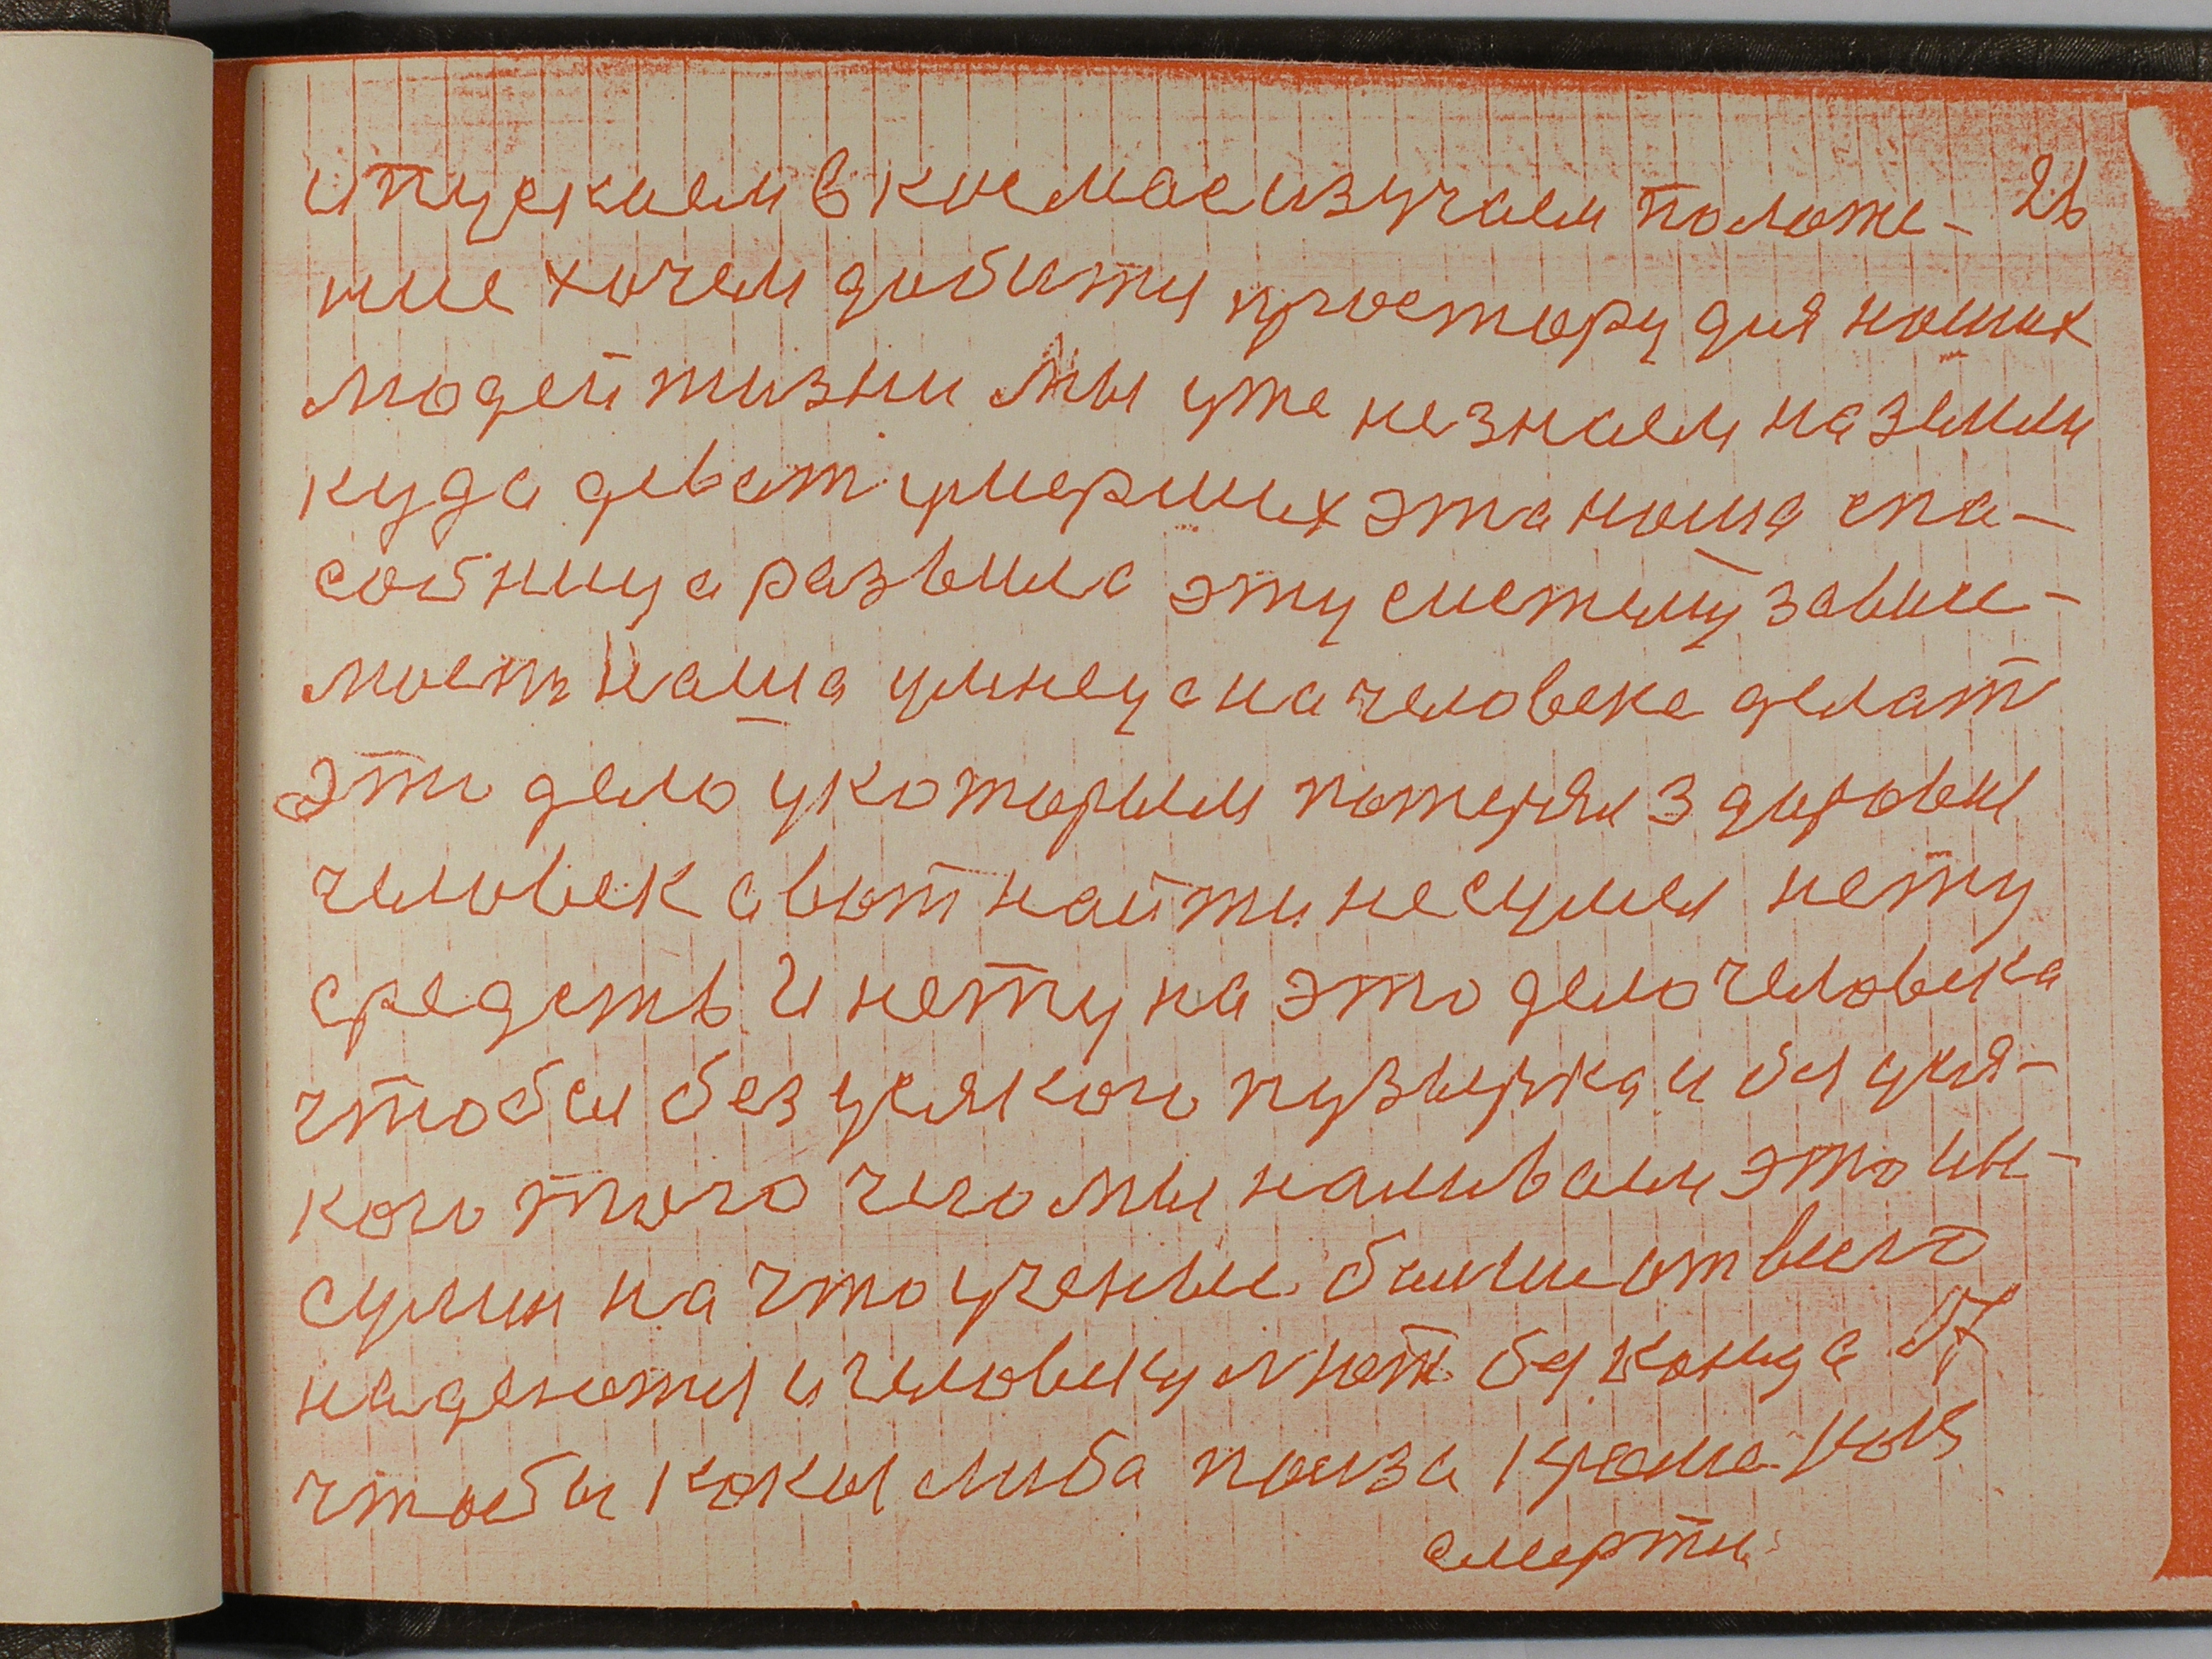 ипускаем в космос изучаем положе- 26
ние хочем добитця простору для наших
людей жизни мы уже незнаем на земли
куда деват умерших эта наша спа-
собница развила эту систему зависи-
мость наша умнеца на человеке делат
это дело укоторым потерял здоровы
человек а вот найти несумел нету
средств и нету на это дело человека
чтобы без усякого пузырька и без уся-
кого того чего мы называем это ин-
на что ученые были от всего
надеютця и человеку льют без конца 17
чтобы какая либа польза кроме как
смерти